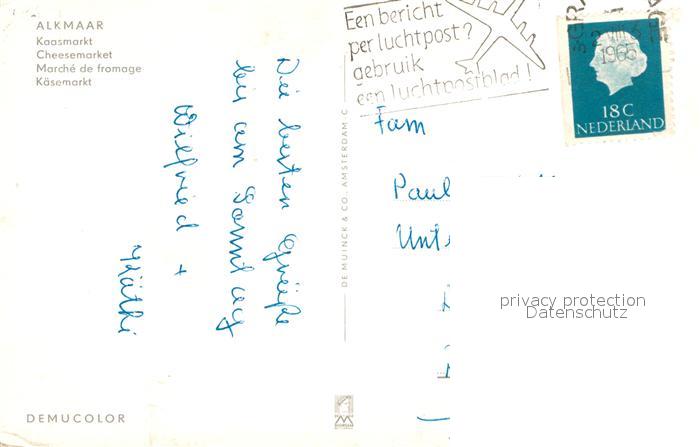 ALKMAAR
Kaasmarkt
Cheesemarket
Marché de fromage
Käsemarkt
Een bericht
per luchtpost?
gebruik
een luchtpostblad!
1965
18 C
NEDERLAND
Die besten Grüße
bis am Sonntag
Wilfried +
Käthi
DE MUINCK & CO., AMSTERDAM-C.
Fam
Paul
Unt
privacy protection
Datenschutz
DEMUCOLOR